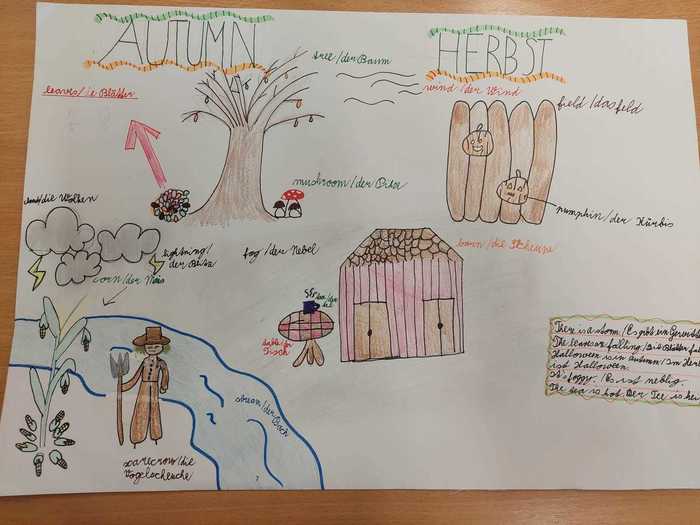 AUTUMN
HERBST
tree/der Baum
wind/der Wind
leaves/die Blätter
field/dasfeld
mushroom/der Pilz
/die Wolken
pumpkin/der Kürbis
lightning/
der Blitz
fog/der Nebel
barn/die Scheune
corn/der Mais
tea/der
table/der
Tisch
stream/der Bach
scarecrow/die
Vogelscheuche
There is a storm./Es gibt ein Gewitter
The leaves are falling./Die Blätter
Halloween is in autumn/Im Her
ist Halloween.
It's foggy./Es ist neblig.
The tea is hot. Der Tee ist hei